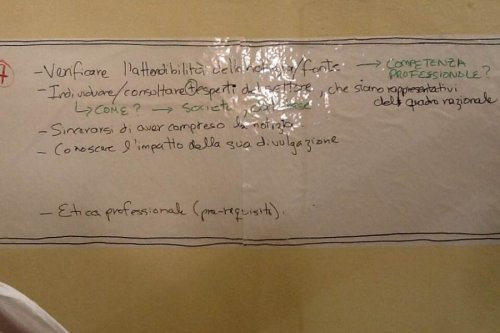 7
- Verificare l'attendibilità della notizia/fonte → COMPETENZA PROFESSIONALE?
- Individuare/consultare + esperti del settore, che siano rappresentativi del quadro nazionale
↳ COME? → SOCIETÀ
- Sincerarsi di aver compreso la notizia
- Conoscere l'impatto della sua divulgazione
- Etica professionale (pre-requisito).